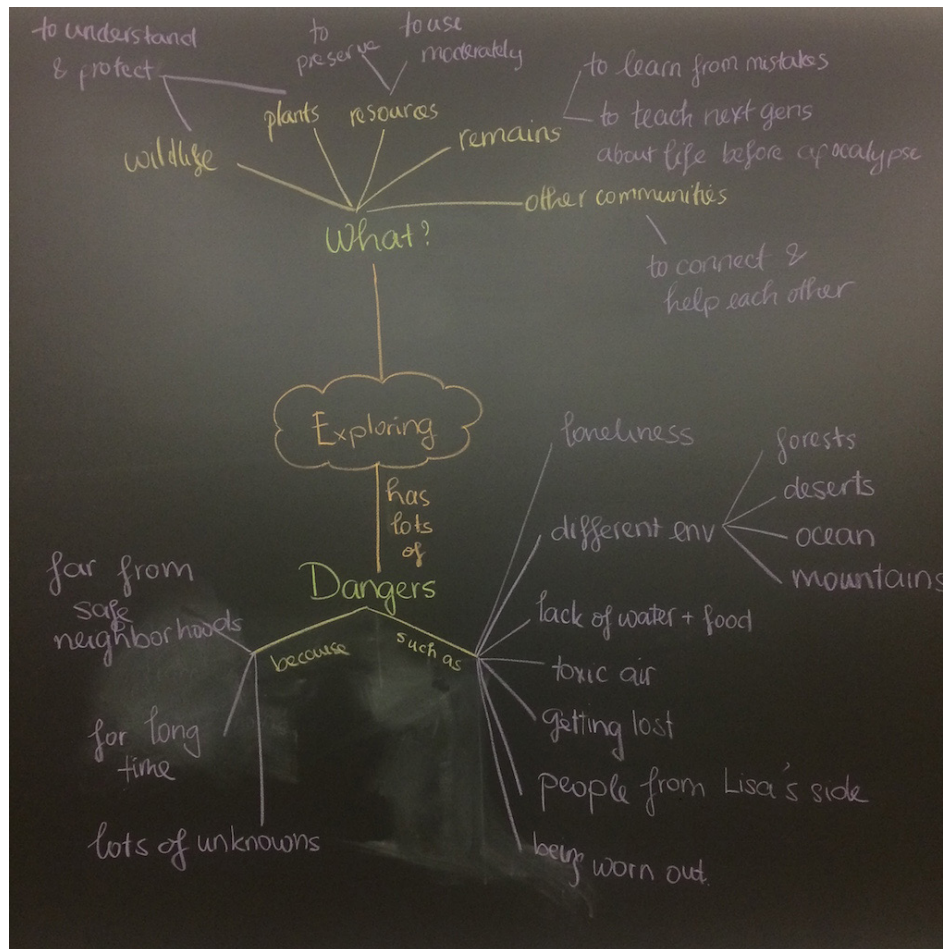 to understand
& protect
to
preserve
to use
moderately
to learn from mistakes
to teach next gens
about life before apocalypse
plants
resources
remains
wildlife
other communities
What?
to connect &
help each other
Exploring
has
lots
of
Dangers
because
such as
far from
safe
neighborhoods
for long
time
lots of unknowns
loneliness
different env
forests
deserts
ocean
mountains
lack of water + food
toxic air
getting lost
people from Lisa's side
being worn out.